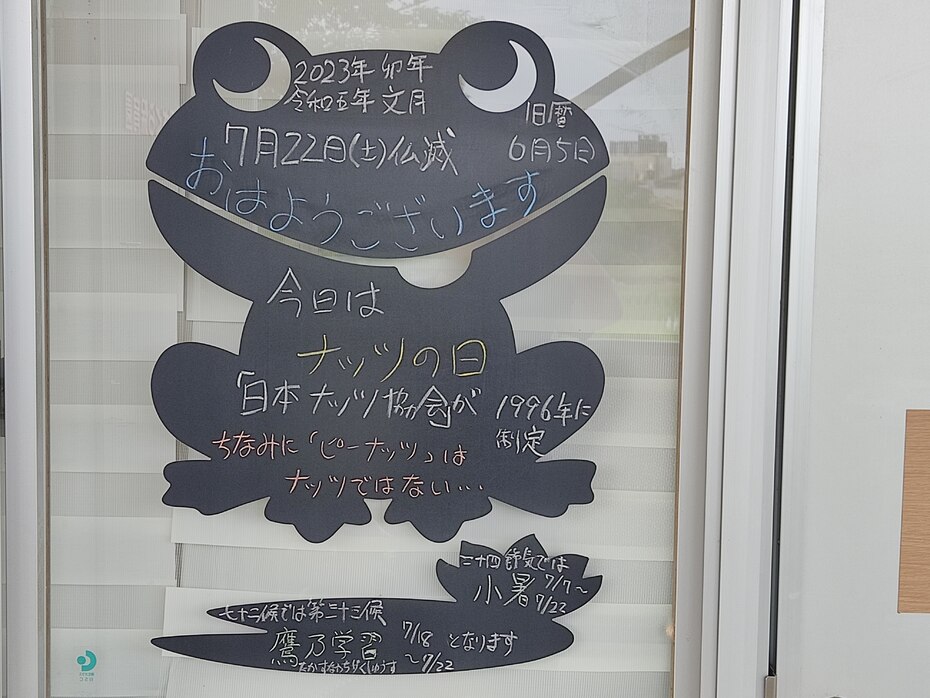 2023年 卯年
令和五年 文月
旧暦
7月22日(土)仏滅
6月5日
おはようございます
今日は
ナッツの日
「日本ナッツ協会」が
1996年に
制定
ちなみに「ピーナッツ」は
ナッツではない…
二十四節気では
小暑 7/7~
7/22
七十二候では第三十三候
鷹乃学習
たかすなわちがくしゅうす
7/18
~7/22
となります